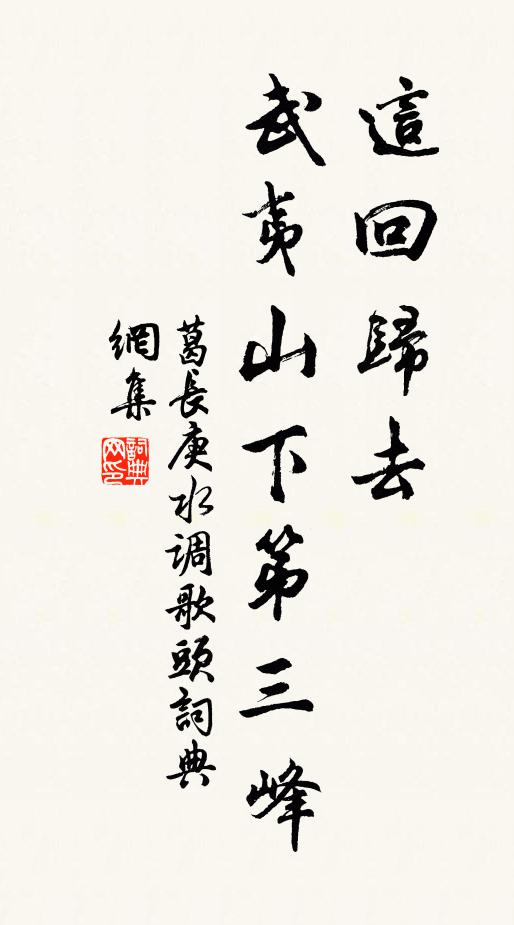 這回歸去
武夷山下第三峰
葛長庚水调歌頭詞典
網集
詞典网印